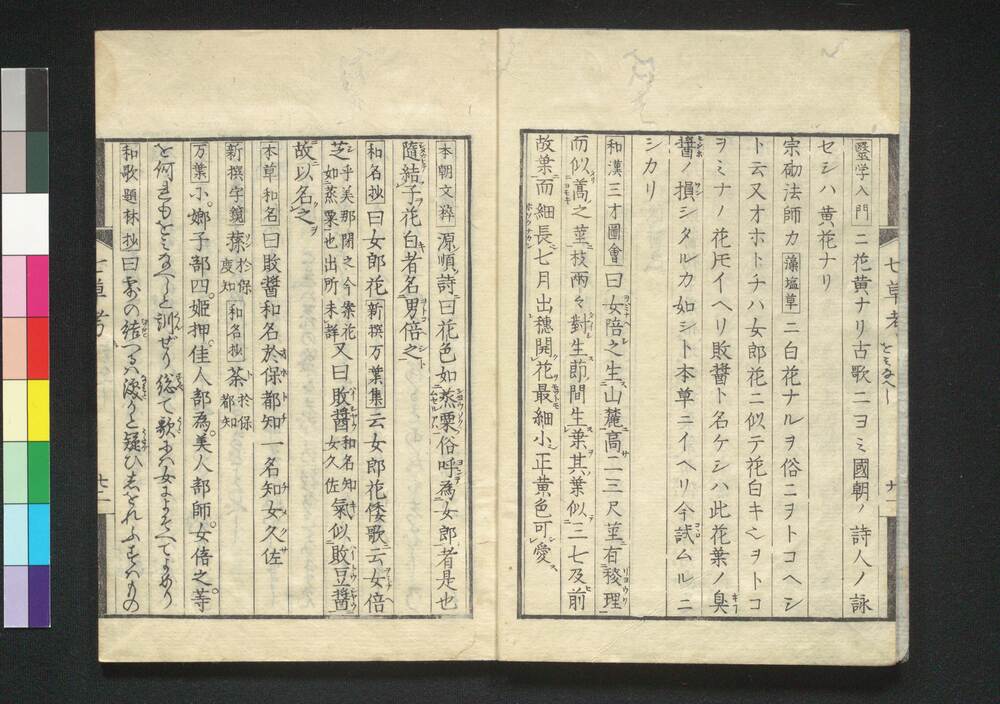 醫学入門ニ花黄ナリ古歌ニヨミ國朝ノ詩人ノ詠
セシハ黄花ナリ
宗砌法師カ藻塩草ニ白花ナルヲ俗ニヲトコヘシ
ト云又オホトチハ女郎花ニ似テ花白キヲヲトコ
ヲミナノ花トモイヘリ敗醤ト名ケシハ此花葉ノ臭
醤ノ損シタルカ如シト本草ニイヘリ今試ムルニ
シカリ
和漢三才圖會曰女陪之生山麓高二三尺莖有稜理
而似蒿之莖枝兩々對生節間生葉其葉似三七及前
故葉而細長七月出穗開花最細小正黄色可愛
本朝文粹源順詩曰花色如蒸粟俗呼為女郎者是也
隨結子花白者名男倍之
和名抄曰女郎花新撰万葉集云女郎花倭歌云女倍
芝乎美那閇之今案花如蒸粟也出所未詳又曰敗醤和名知女久佐氣似敗豆醤
故以名之
本草和名曰敗醤和名於保都知一名知女久佐
新撰字鏡蘂於保度知和名抄荼於保都知
万葉小嫏子部四姫押佳人部為美人部師女倍之等
を何れもをみなへしと訓ぜり総て歌には女によそへてよめり
和歌題林抄曰露の結つるハ涙かと疑ひ
七草考
をみなへし
廿一
廿二